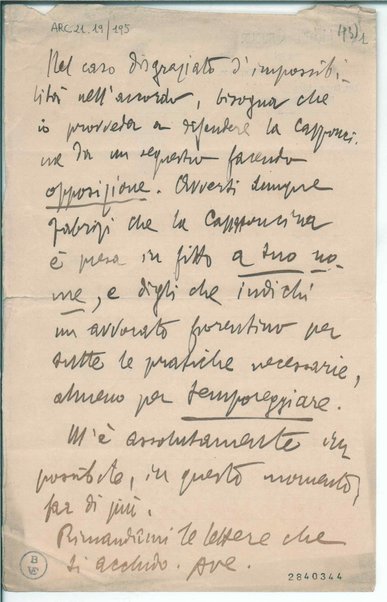 ARC 21. 19/195
Nel caso disgraziato d'impossibi-
lità nell'accordo, bisogna che
io provveda a difendere la Capponci-
na da un sequestro facendo
opposizione. Avverti sempre
Fabrizi che la Capponcina
è presa in fitto a suo no-
me, e digli che indichi
un avvocato fiorentino per
tutte le pratiche necessarie,
almeno per temporeggiare.
M'è assolutamente im-
possibile, in questo momento,
far di più.
Rimandami le lettere che
ti acchiudo. Ave.
2840344